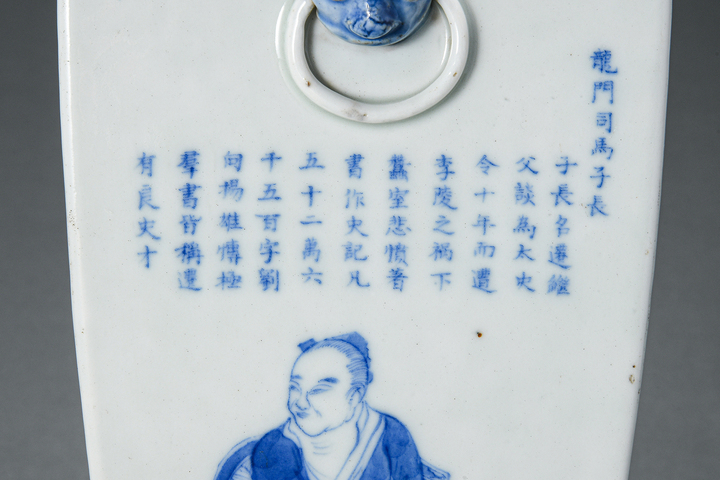 龍門司馬子長
子長名遷繼
父談為太史
令十年而遭
李陵之禍下
蠶室悲憤著
書作史記凡
五十二萬六
千五百字劉
向揚雄博極
羣書皆稱遷
有良史才